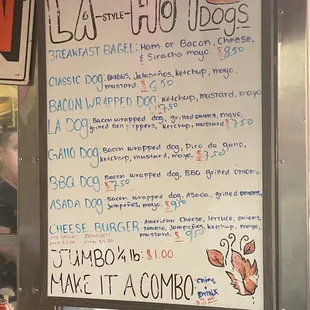 LA-STYLE-HOT DOGS
BREAKFAST BAGEL: Ham or Bacon, Cheese,
& Siracha mayo. $8.50
CLASSIC DOG: onions, Jalapeños, ketchup, mayo,
mustard. $6.50
BACON WRAPPED DOG: ketchup, mustard, mayo
$7.50
LA DOG: Bacon wrapped dog, grilled onions, mayo,
grilled Bell peppers, ketchup, mustard $7.50
GALLO DOG: Bacon wrapped dog, Pico de gallo,
ketchup, mustard, mayo. $7.50
BBQ DOG: Bacon wrapped dog, BBQ grilled onions.
$7.50
ASADA DOG: Bacon wrapped dog, Asada, grilled onions,
Jalapeños, mayo. $9.50
CHEESE BURGER: American Cheese, lettuce, onions,
tomato, Jalapeños, ketchup, mayo,
mustard. $9.50
JUMBO 1/4 lb: $1.00
MAKE IT A COMBO: chips
& DRINK